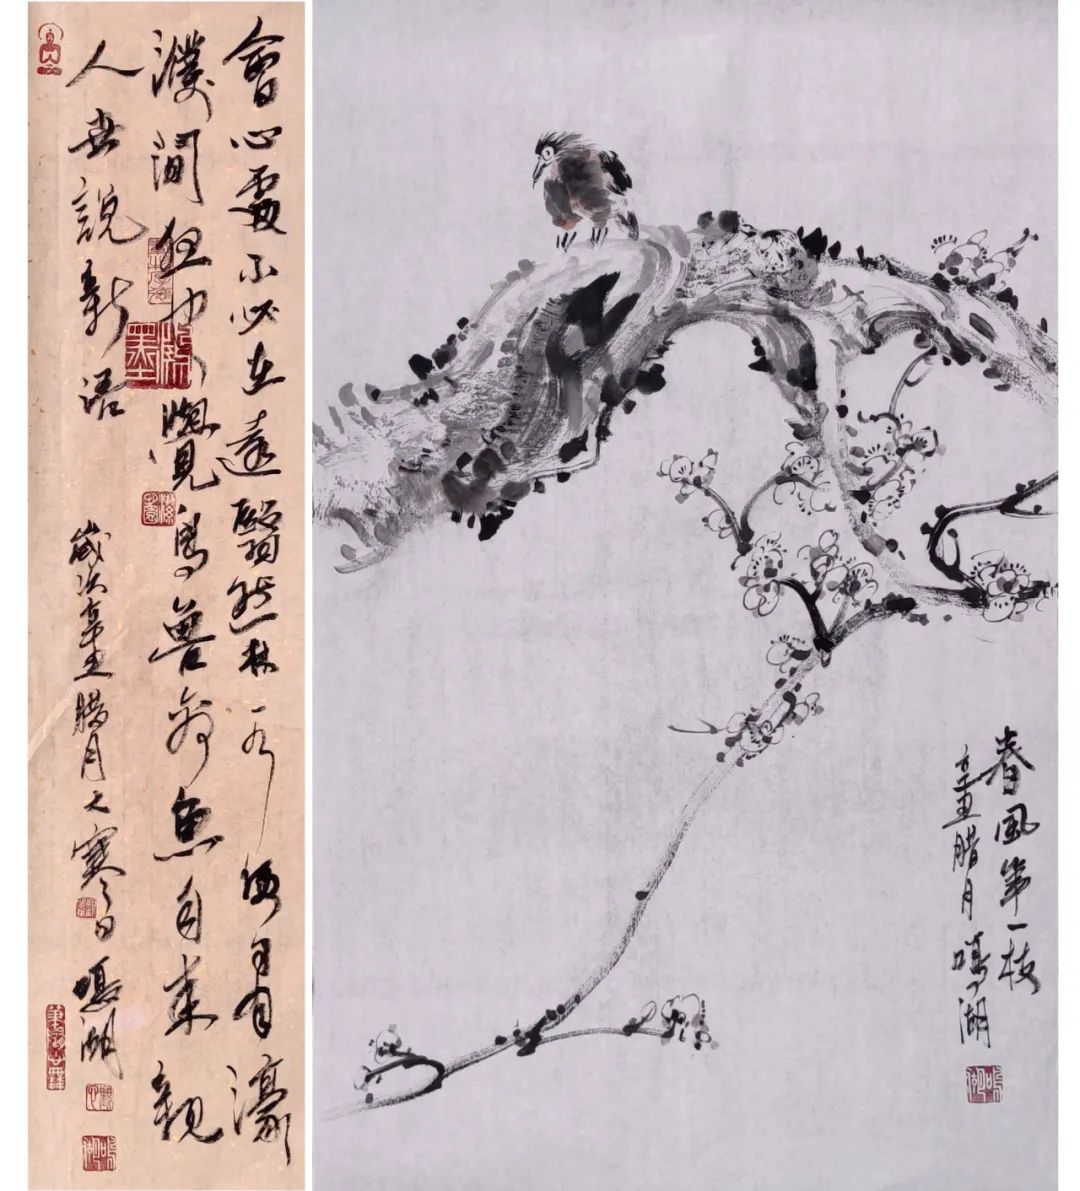 會心處不必在遠翳然林水便自有濠
濮間想也覺鳥獸禽魚自來親
人世說新語
歲次辛丑臘月大寒之日鳴湖
春風第一枝
辛丑臘月鳴湖
鳴湖
鳴湖